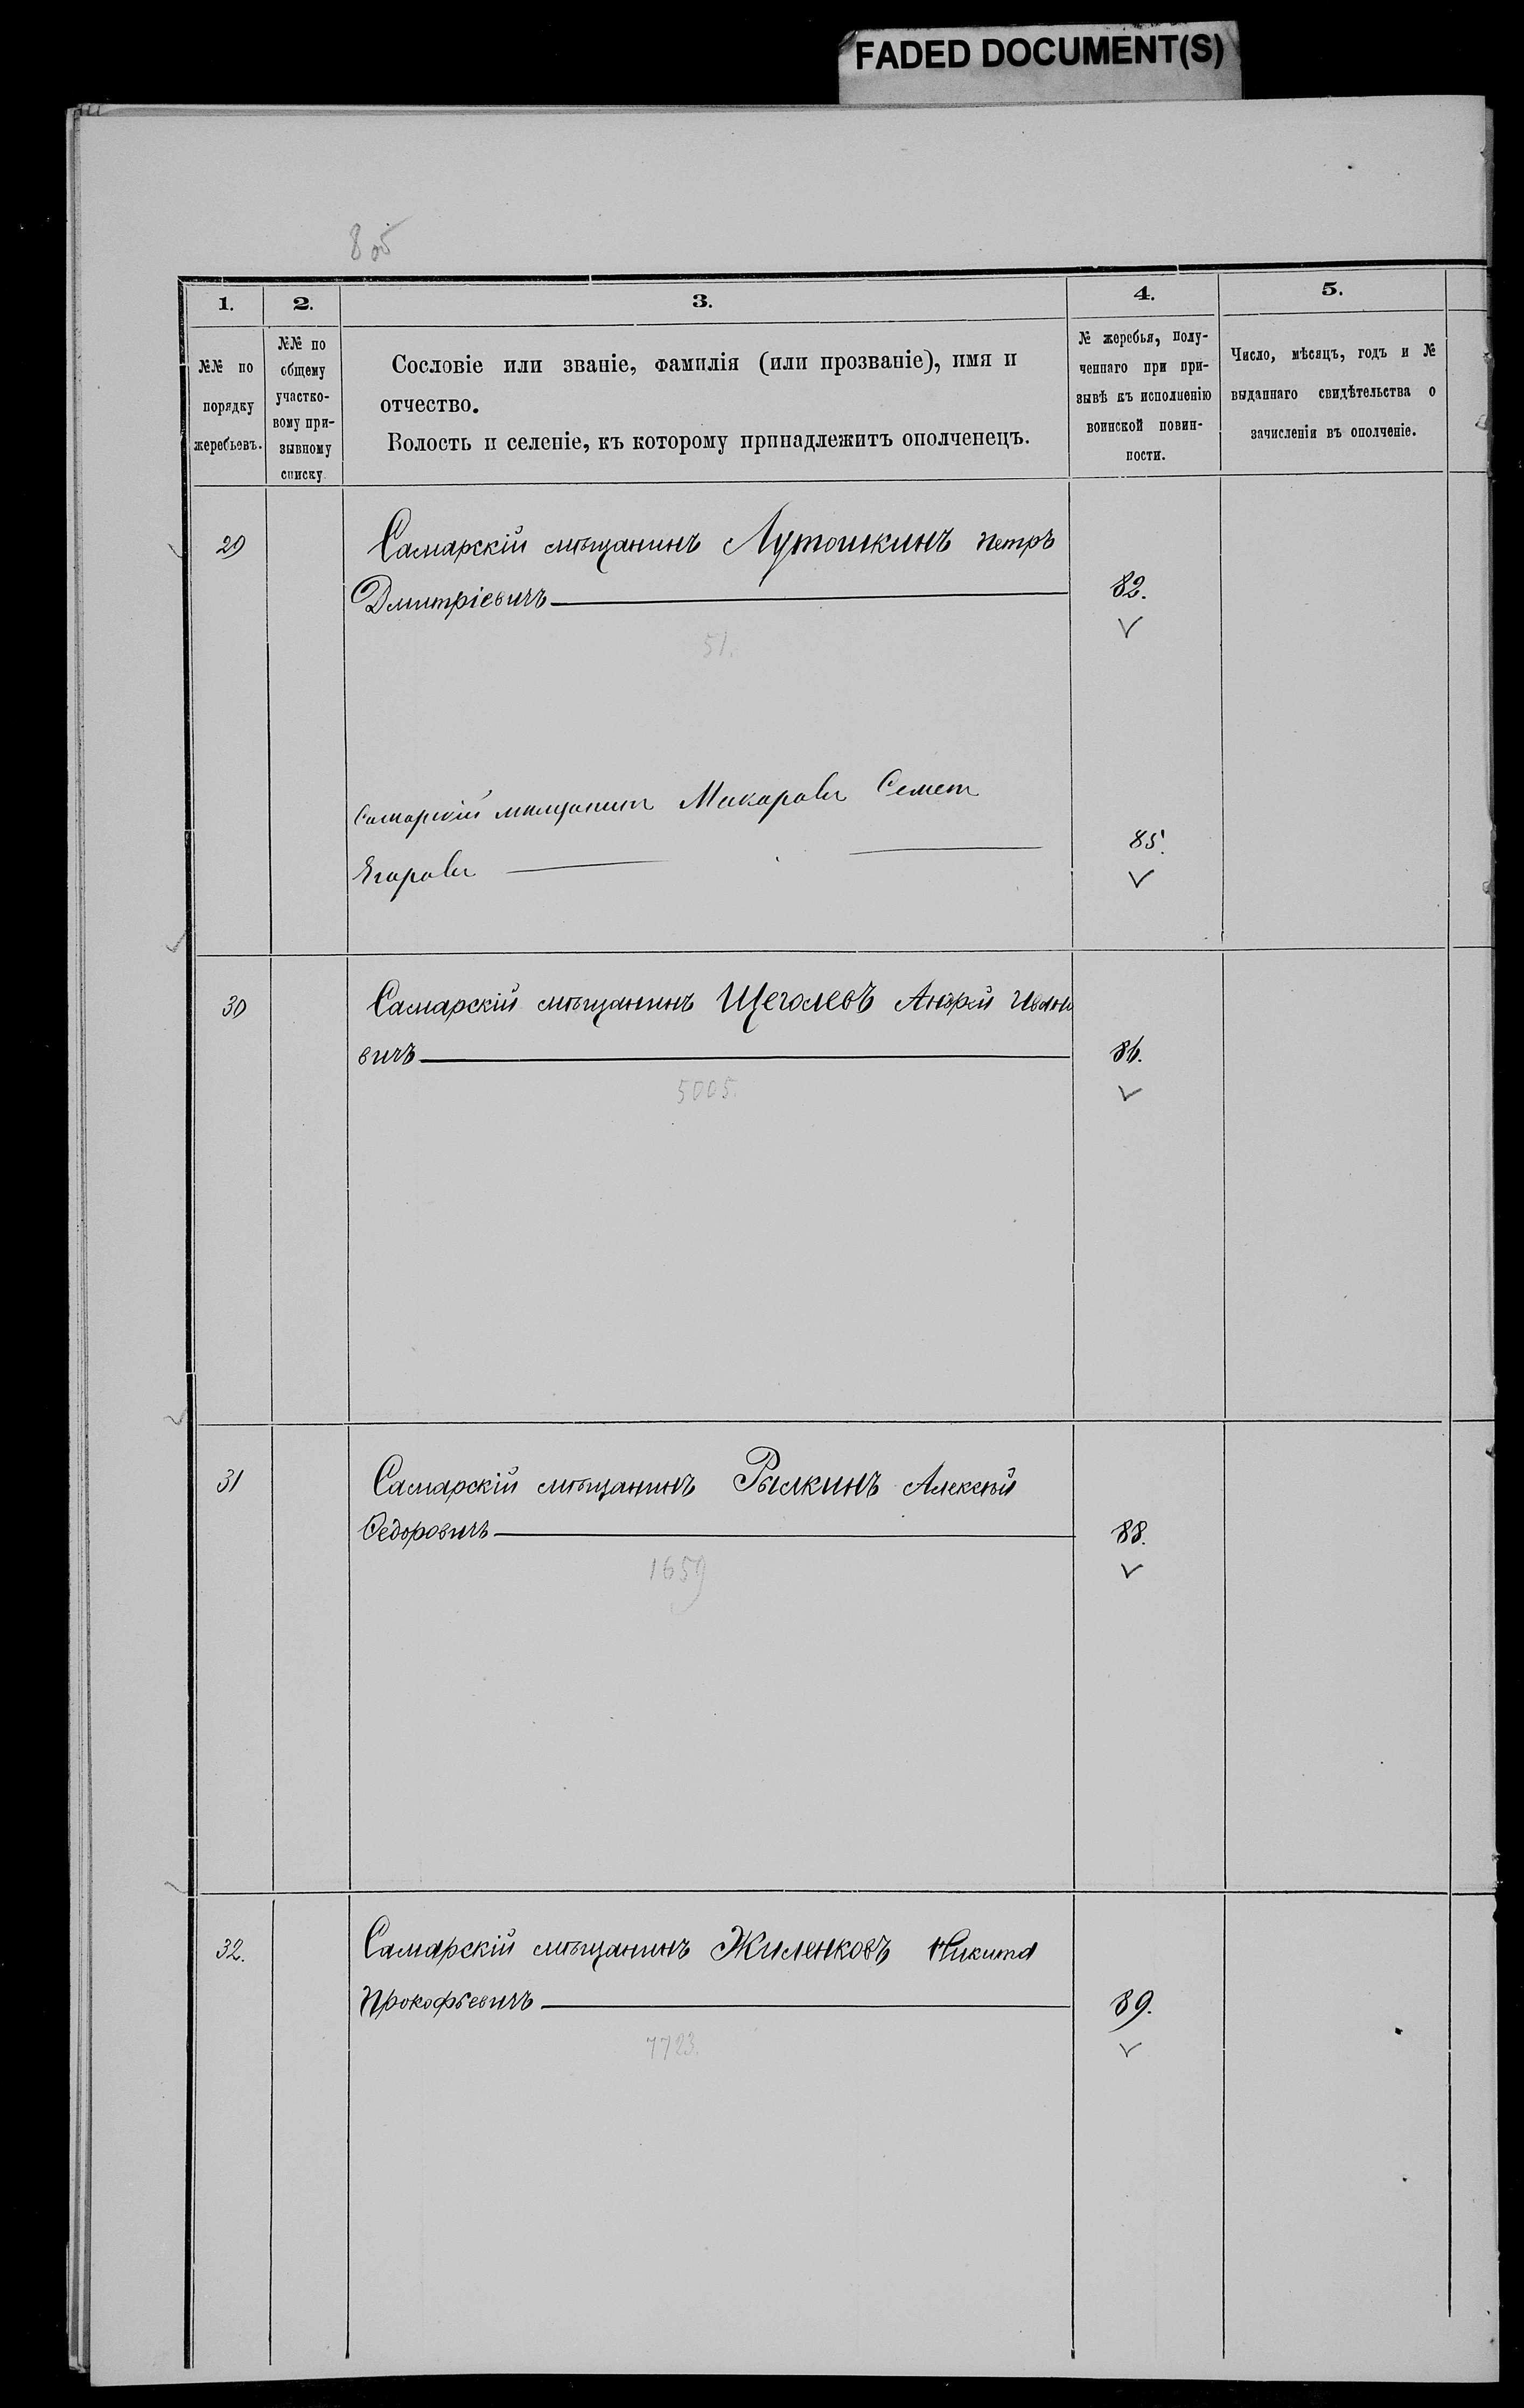 FADED DOCUMENT(S)
805
1.
2.
3.
4.
5.
№№ по
порядку
жеребьевъ.
№№ по
общему
участко-
вому при-
зывному
списку
Сословіе или званіе, фамилія (или прозваніе), имя и
отчество.
Волость и селеніе, къ которому принадлежитъ ополченецъ.
№ жеребья, полу-
ченнаго при при-
зывѣ къ исполненію
воинской повин-
ности.
Число, мѣсяцъ, годъ и №
выданнаго свидѣтельства о
зачисленіи въ ополченіе.
29
Самарскій мѣщанинъ Лутошкинъ Петръ
Дмитріевичъ
82.
51.
Самарскій мѣщанинъ Макаровъ Семенъ
Егоровъ
85.
30
Самарскій мѣщанинъ Щеголевъ Андрей Ивано
вичъ
86.
5005.
31
Самарскій мѣщанинъ Рылкинъ Алексѣй
Ѳедоровичъ
88.
1659
32.
Самарскій мѣщанинъ Жиленковъ Никита
Прокофьевичъ
89.
7723.